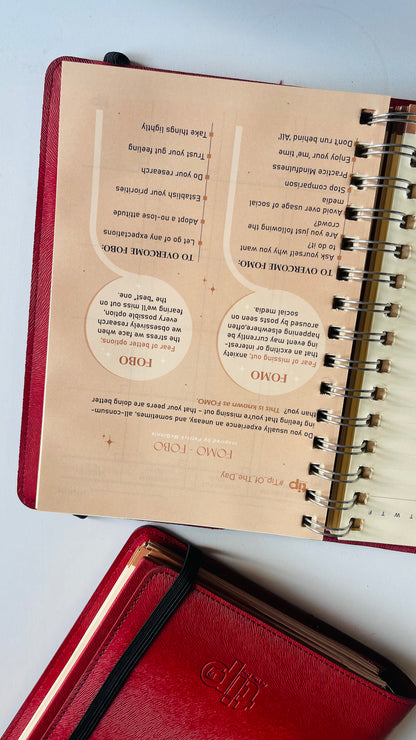 tip #Tip_Of_The_Day
FOMO - FOBO
Inspired by Patrick McGinnis
Do you usually experience an uneasy, and sometimes, all-consum-
ing feeling that you're missing out – that your peers are doing
than you? This is known as FOMO.
FOMO
Fear of missing out, anxiety
that an exciting or interest-
ing event may currently be
happening elsewhere,often
aroused by posts seen on
social media.
FOBO
Fear of better options,
the stress we face when
we obsessively research
every possible option,
fearing we'll miss out on
the "best" one.
TO OVERCOME FOMO:
Ask yourself why you want
to do it
Are you just following the
crowd?
Avoid over usage of social
media
Stop comparison
Practice Mindfulness
Enjoy your 'me' time
Don't run behind 'All'
TO OVERCOME FOBO:
Let go of any expectations
Adopt a no-lose attitude
Establish your priorities
Do your research
Trust your gut feeling
Take things lightly
T W T F